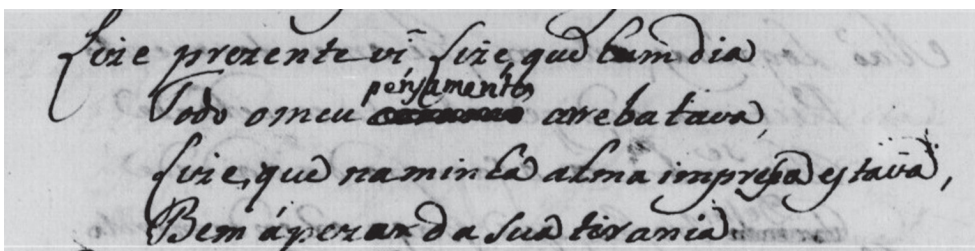 Lize prezente vî Lize, que hum dia
pensamento
Todo omeu arrebatava,
Lize, que naminha alma impressa estava,
Bem ápezar da sua tirania.